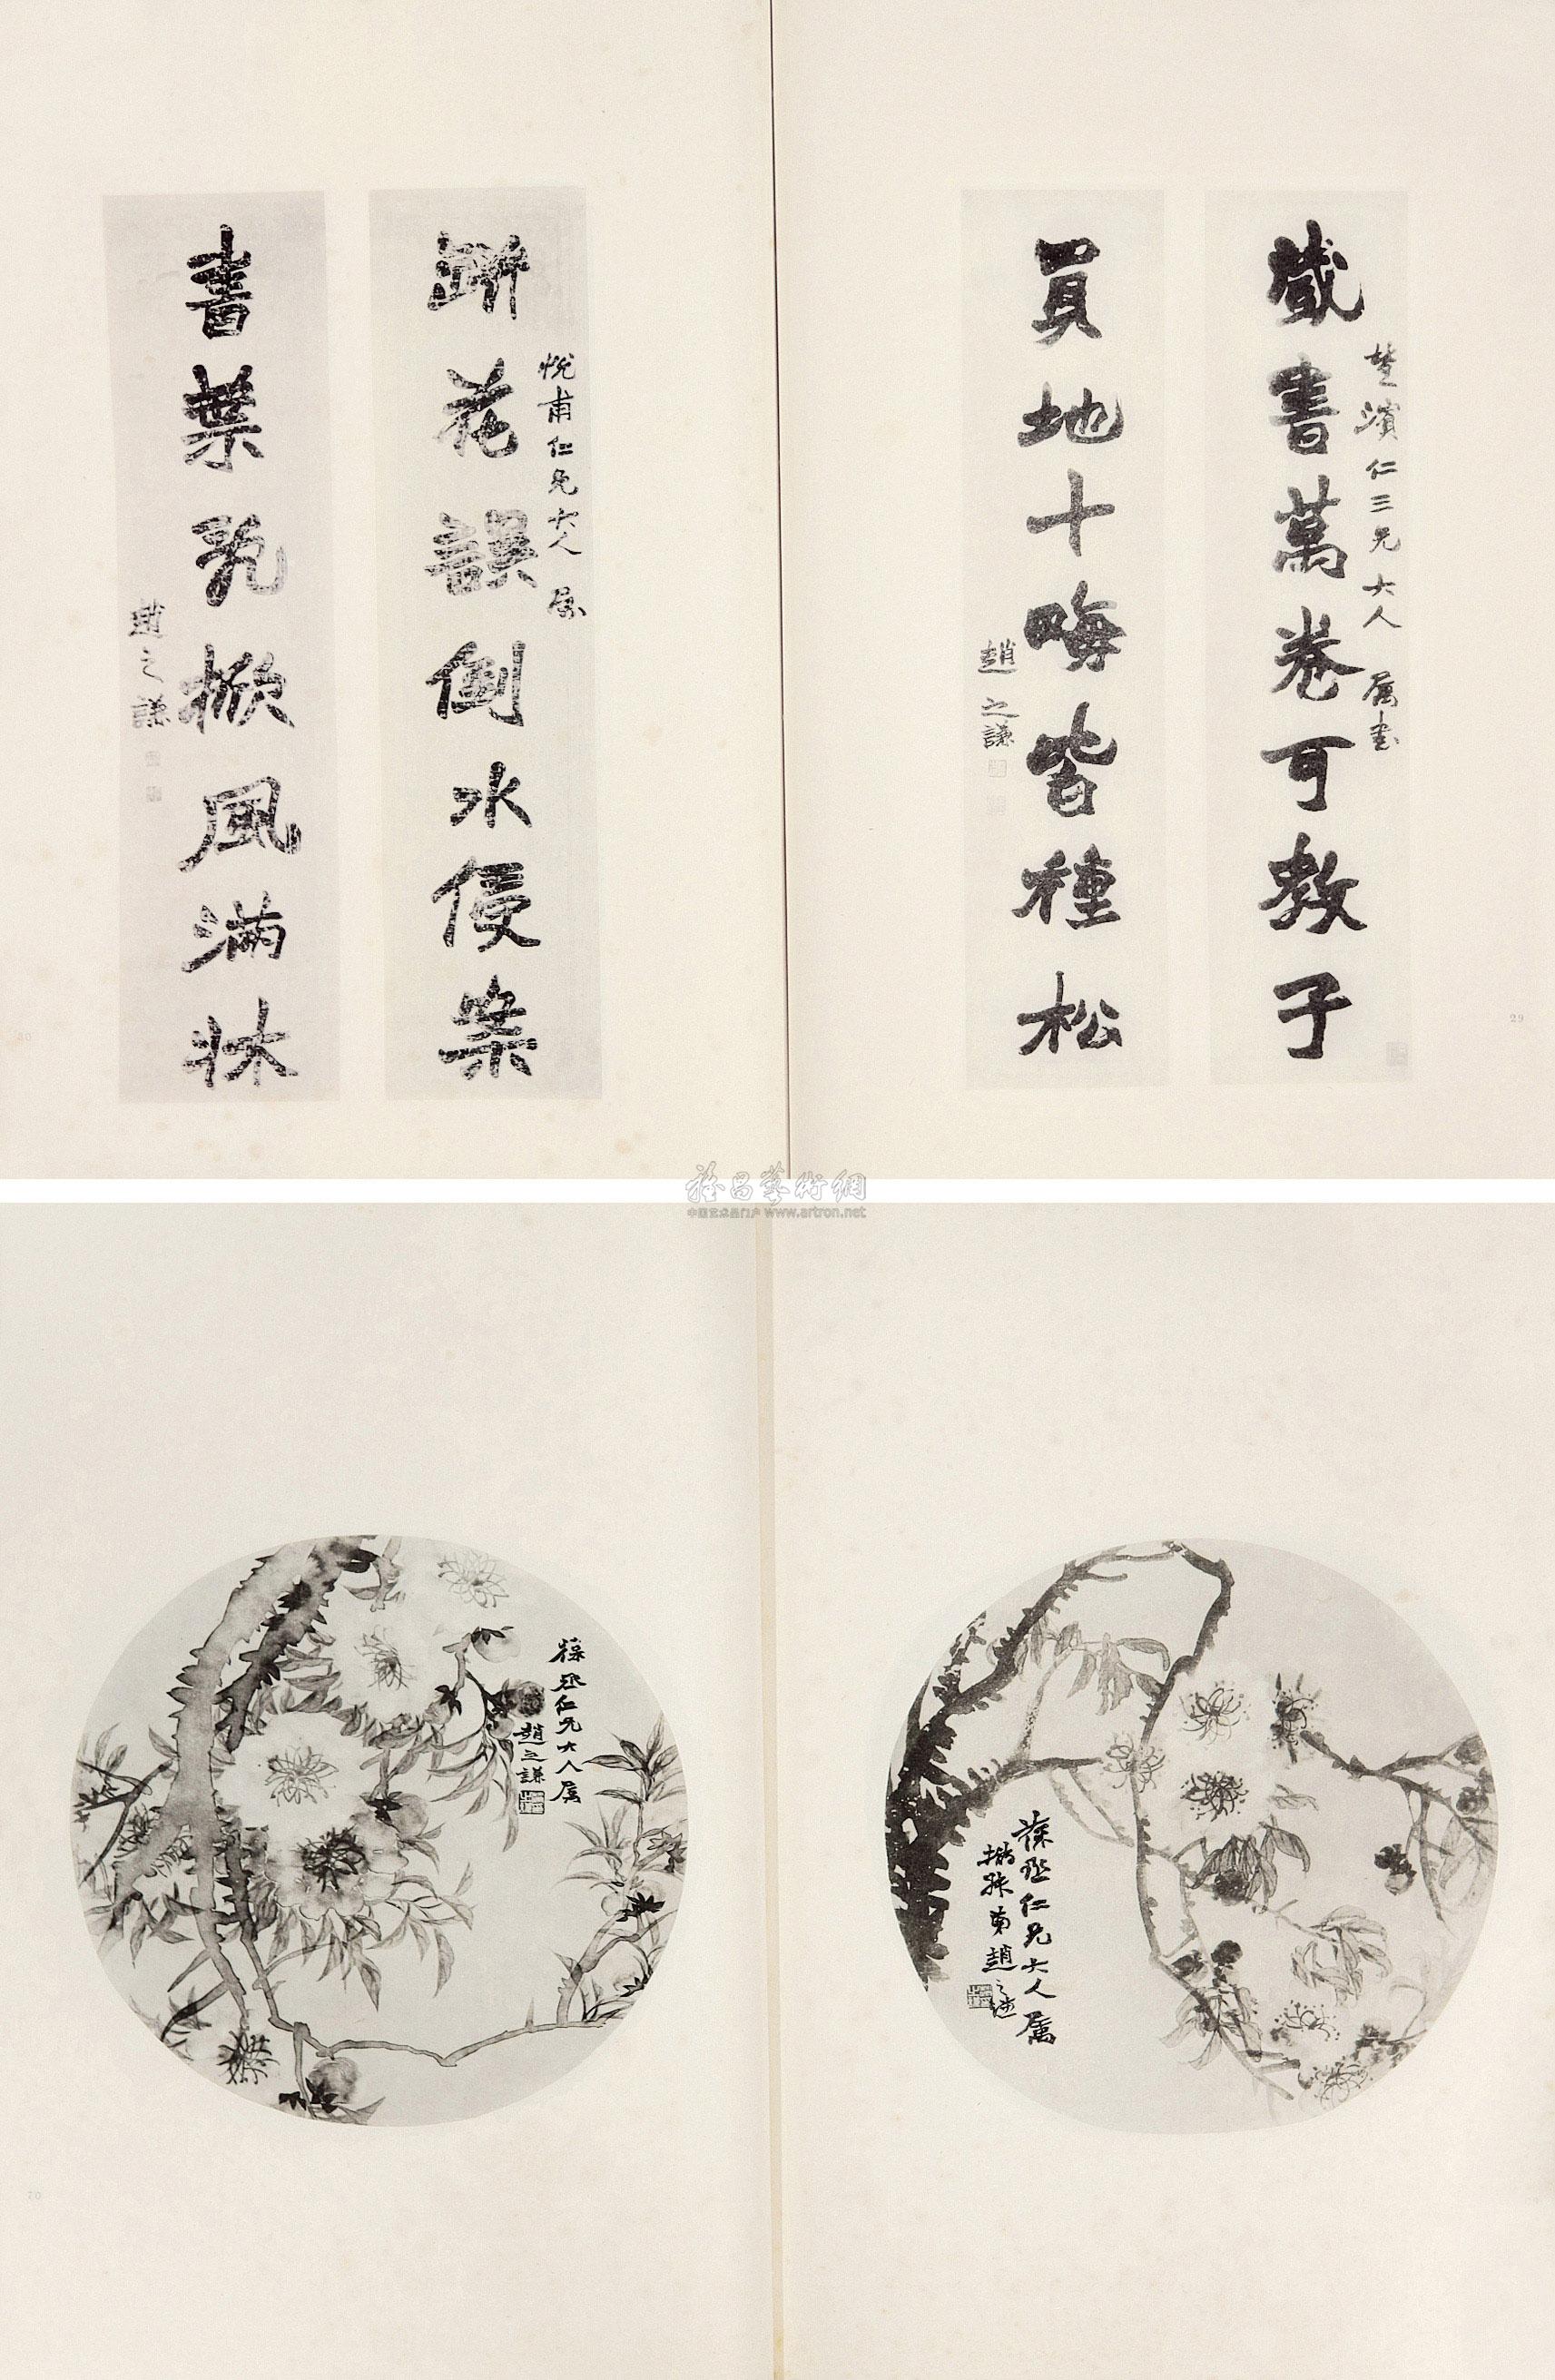 藏書萬卷可教子
楚濱仁三兄大人屬書
買地十畮皆種松
趙之謙
29
硎花誤倒水侵案
悦甫仁兄大人屬
書葉乳掀風滿牀
趙之謙
30
雅昌藝術網
中国艺术品门户 www.artron.net
葆丞仁兄大人屬
撝叔弟趙之謙
葆丞仁兄大人屬
趙之謙
70